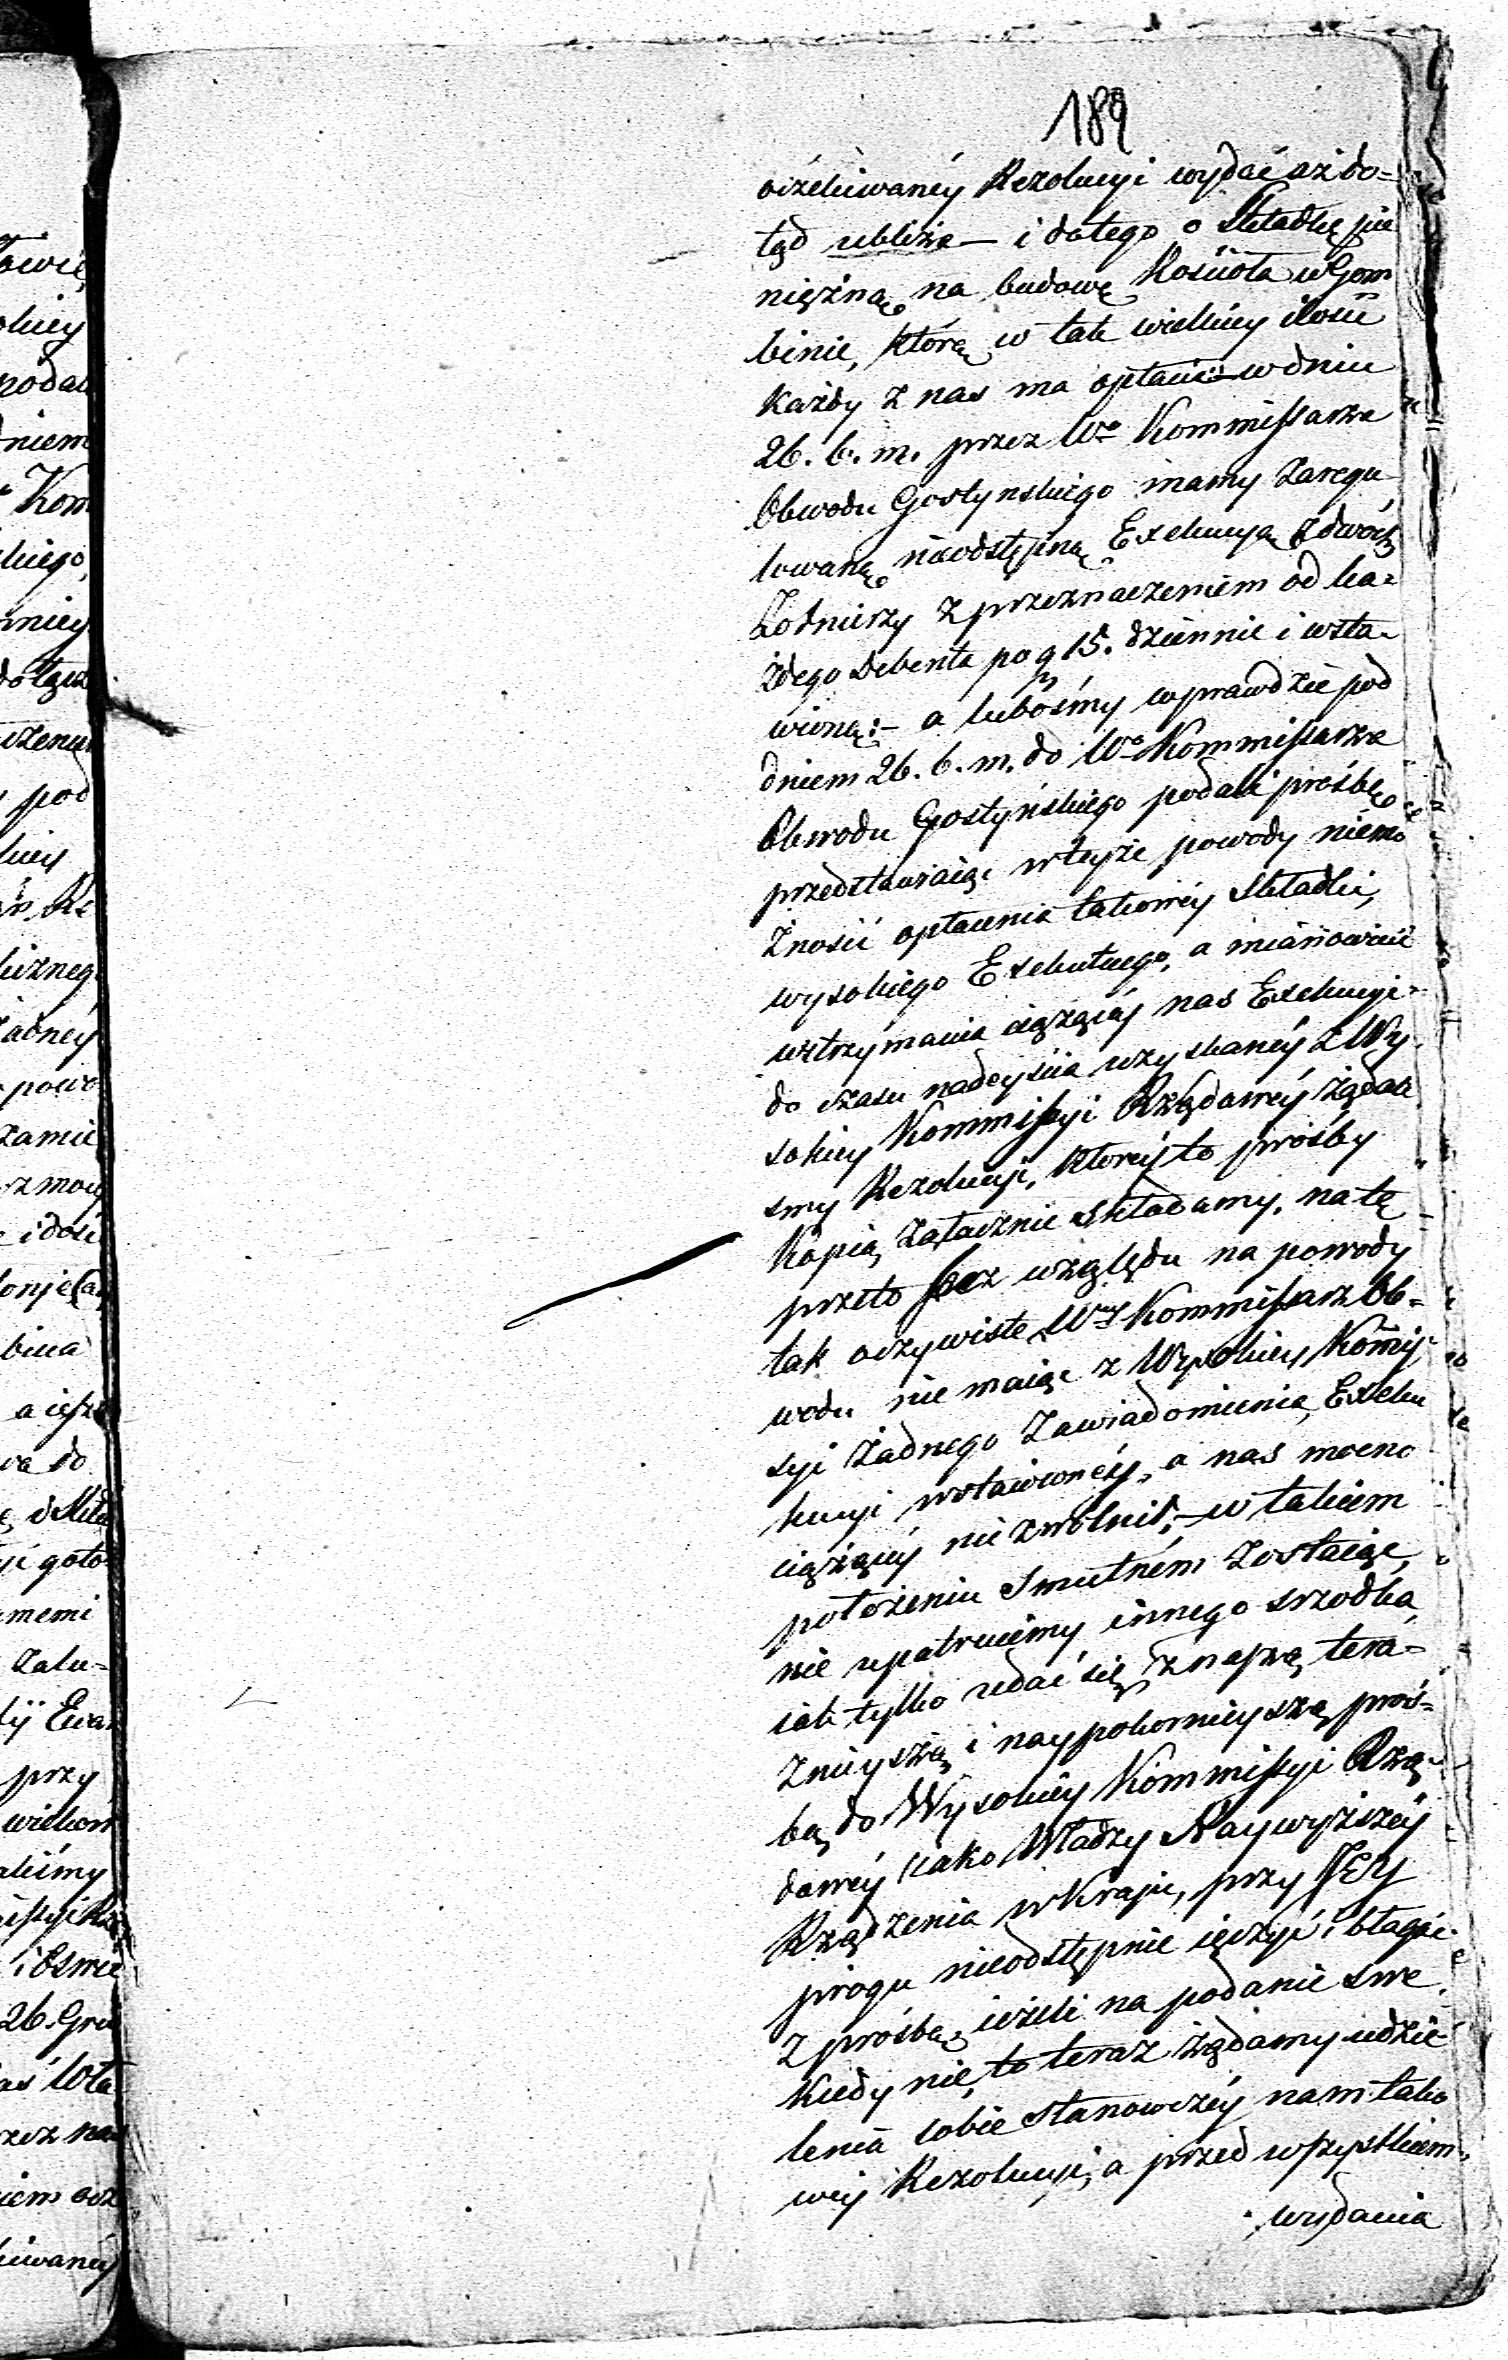 189
oczekiwanéy Rezolucyi wydać aż do-
tąd ubliża — i dotego o Składkę pie
niężną na budowę Kościoła w Gom
binie, którą w tak wielkiey ilości
każdy z nas ma opłacić w dniu
26. b. m. przez Wo Kommissarza
Obwodu Gostynskiego mamy zaregu
lowaną nieodstępną Exekucyą z dwóch
Żołnierzy z przeznaczeniem od ka-
żdego Debenta po g 15. dziennie i wsta-
wioną:- a lubośmy wprawdzie pod
dniem 26. b. m. do Wo Kommissarza
Obwodu Gostyńskiego podali prośbę
przedstawiaiąc w teyże powody niemo
żności opłacenia takowéy Składki,
wysokiego Exekutnego, a mianowicie
wstrzymania ciążącéy nas Exekucyi
do czasu nadeyścia uzyskanéy z Wy
sokiey Kommissyi Rządowéy żądali
smy Rezolucyi, któréy to prośby
Kopią załacznie składamy, na tę
przeto bez względu na powody
tak oczywiste Wny Kommissarz Ob-
wodu nie maiąc z Wysokiey Kommis
syi żadnego zawiadomienia, Exeku
kucyi wstawionéy, a nas mocno
ciążącéy nie zwolnił; - w takiem
położeniu smutném zostaiąc,
nie upatruiemy innego srzodka
iak tylko udać się z naszą tera-
znieyszą i naypokornieyszą proś-
bą do Wysokiéy Kommissyi Rzą-
dowéy iako Władzy Naywyższéy
Rządzenia w Kraju, przy JEY
progu nieodstępnie ięczyć i błagać
z prośbą ieżeli na podanie swe
kiedy nie, to teraz żądamy udzie
lenia sobie stanowczéy nam tako
wéy Rezolucyi, a przed wszystkiem
wydania